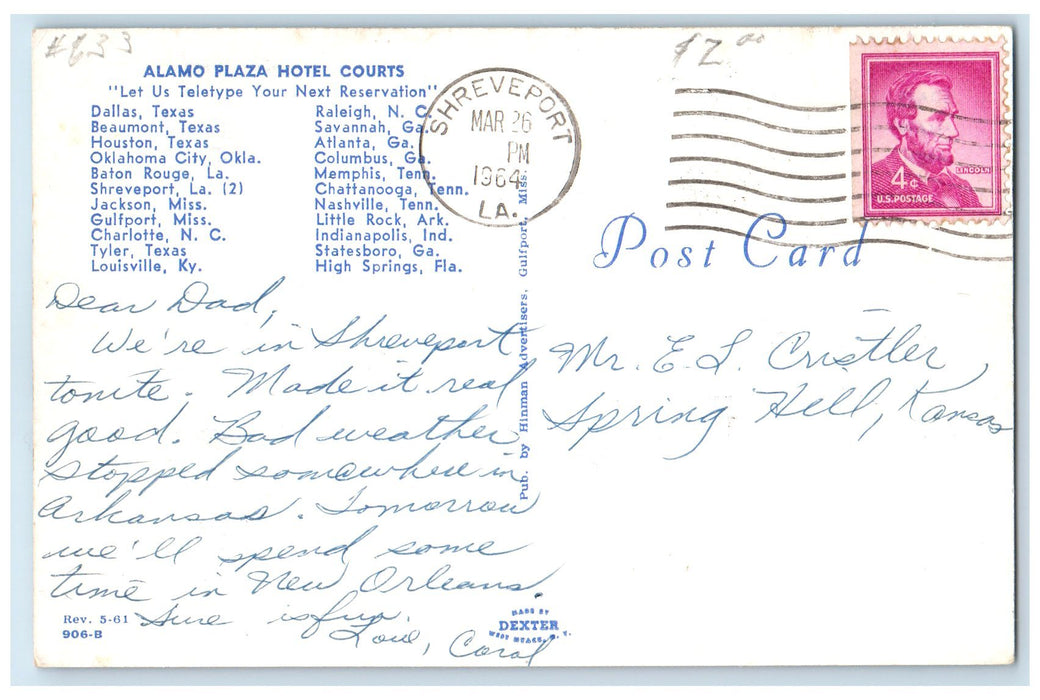 #633
$2.00
ALAMO PLAZA HOTEL COURTS
"Let Us Teletype Your Next Reservation"
Dallas, Texas
Beaumont, Texas
Houston, Texas
Oklahoma City, Okla.
Baton Rouge, La.
Shreveport, La. (2)
Jackson, Miss.
Gulfport, Miss.
Charlotte, N. C.
Tyler, Texas
Louisville, Ky.
Raleigh, N. C.
Savannah, Ga.
Atlanta, Ga.
Columbus, Ga.
Memphis, Tenn.
Chattanooga, Tenn.
Nashville, Tenn.
Little Rock, Ark.
Indianapolis, Ind.
Statesboro, Ga.
High Springs, Fla.
SHREVEPORT
MAR 26
PM
1964
LA.
LINCOLN
4¢
U.S. POSTAGE
Post Card
Dear Dad,
We're in Shreveport
tonite. Made it real
good. Bad weather
stopped somewhere in
Arkansas. Tomorrow
we'll spend some
time in New Orleans.
Sure is fun.
Love, Coral
Mr. E. L. Cristler,
Spring Hill, Kansas
Pub. by Hinman Advertisers, Gulfport, Miss.
Rev. 5-61
906-B
MADE BY
DEXTER
WEST NYACK, N. Y.